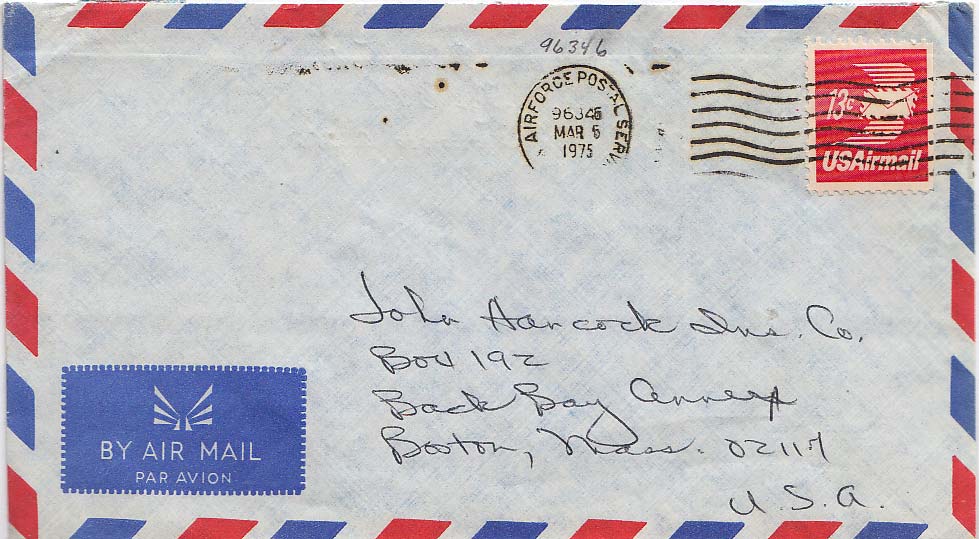 96346
AIRFORCE POSTAL SERV
96346
MAR 5
1975
13c
USAirmail
John Hancock Ins. Co.
Box 192
Back Bay Annex
Boston, Mass. 02117
U.S.A.
BY AIR MAIL
PAR AVION